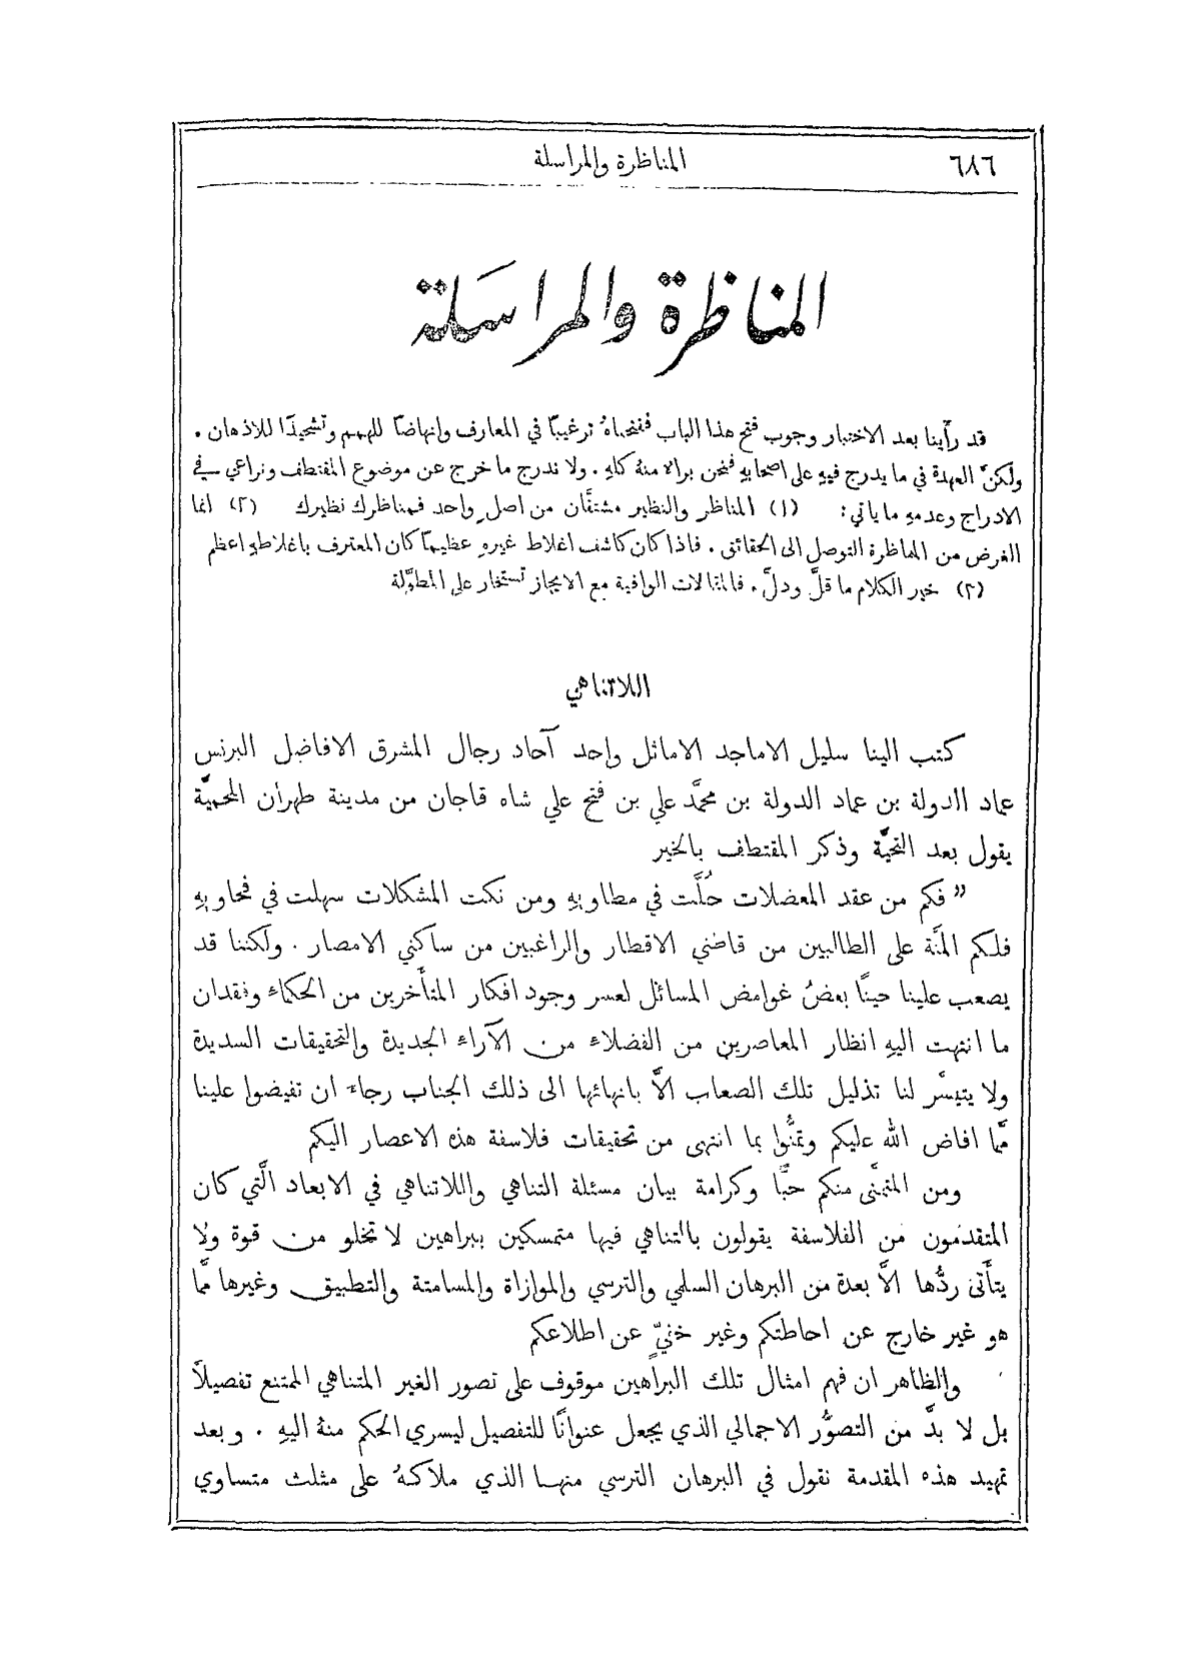 ٦٨٦
المناظرة والمراسلة
المناظرة والمراسَلة
قد رأَينا بعد الاختبار وجوب فتح هذا الباب ففتحناهُ ترغيبًا في المعارف وانهاضًا للهمم وتشحيذًا للاذهان .
ولكنَّ العهدة في ما يدرج فيهِ على اصحابهِ فنحن براء منهُ كلهِ . ولا ندرج ما خرج عن موضوع المقتطف ونراعي في
الادراج وعدمهِ ما ياتي : (١) المناظر والنظير مشتقَّان من اصلٍ واحد فمناظرك نظيرك (٢) انما
الغرض من المناظرة التوصل الى الحقائق . فاذا كان كاشف اغلاط غيرهِ عظيمًا كان المعترف باغلاطهِ اعظم
(٣) خير الكلام ما قلَّ ودلَّ . فالمقالات الوافية مع الايجاز تستخار على المطوَّلة
اللاتناهي
كتب الينا سليل الاماجد الاماثل واحد آحاد رجال المشرق الافاضل البرنس
عماد الدولة بن عماد الدولة بن محمَّد علي بن فتح علي شاه قاجان من مدينة طهران المحميَّة
يقول بعد التحيَّة وذكر المقتطف بالخير
" فكم من عقد المعضلات حُلَّت في مطاويهِ ومن نكت المشكلات سهلت في فحاويهِ
فلكم المنَّة على الطالبين من قاطني الاقطار والراغبين من ساكني الامصار . ولكننا قد
يصعب علينا حينًا بعضُ غوامض المسائل لعسر وجود افكار المتأَخرين من الحكماء وفقدان
ما انتهت اليهِ انظار المعاصرين من الفضلاء من الآراء الجديدة والتحقيقات السديدة
ولا يتيسَّر لنا تذليل تلك الصعاب الاَّ بانهائها الى ذلك الجناب رجاء ان تفيضوا علينا
ممَّا افاض الله عليكم وتمنُّوا بما انتهى من تحقيقات فلاسفة هذه الاعصار اليكم
ومن المتمنَّى منكم حبًّا وكرامة بيان مسئلة التناهي واللاتناهي في الابعاد الَّتي كان
المتقدمون من الفلاسفة يقولون بالتناهي فيها متمسكين ببراهين لا تخلو من قوة ولا
يتأَتى ردُّها الاَّ بعدة من البرهان السلمي والترسي والموازاة والمسامتة والتطبيق وغيرها ممَّا
هو غير خارج عن احاطتكم وغير خفيّ عن اطلاعكم
والظاهر ان فهم امثال تلك البراهين موقوف على تصور الغير المتناهي الممتنع تفصيلاً
بل لا بدَّ من التصوُّر الاجمالي الذي يجعل عنوانًا للتفصيل ليسري الحكم منهُ اليهِ . وبعد
تمهيد هذه المقدمة نقول في البرهان الترسي منها الذي ملاكهُ على مثلث متساوي